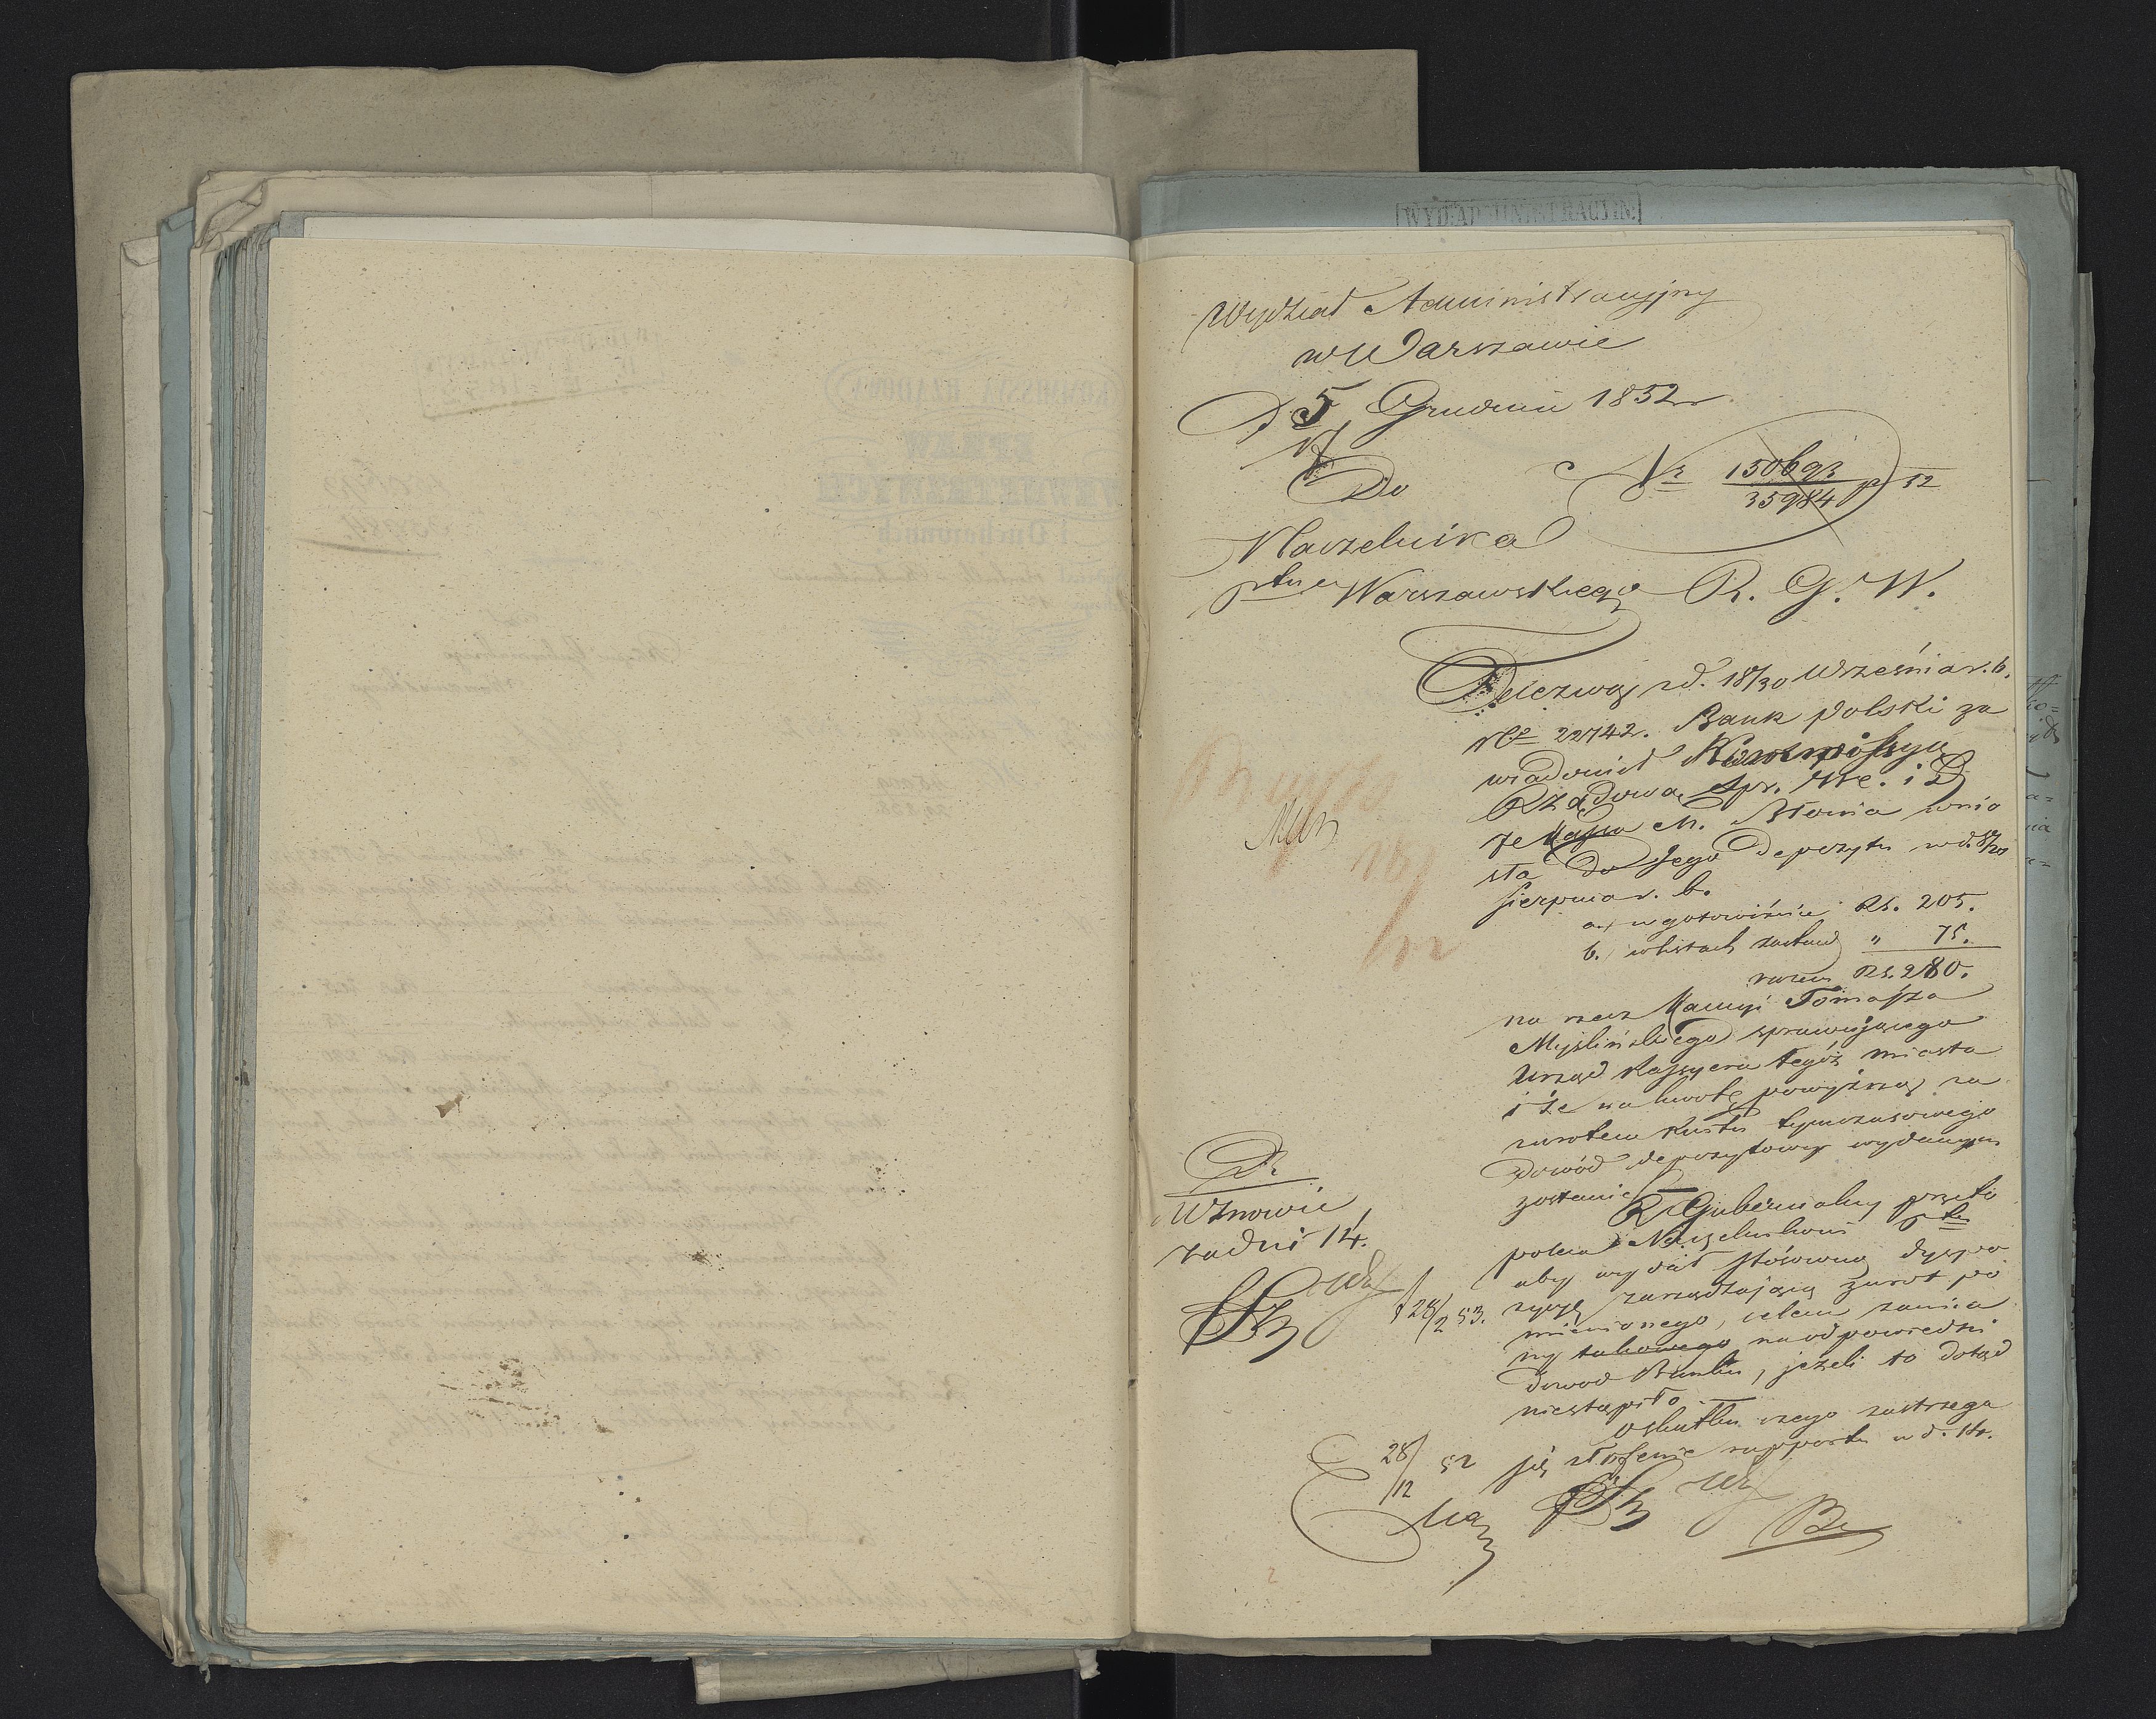 WYD. ADMINISTRACYJN.
Wydział Administracyjny
w Warszawie
D 5 Grudnia 1852 r
Do
Nr 150693/35984 p 52
Naczelnika
ptu Warszawskiego R. G. W.
Odezwą z d. 18/30 Września r. b.
Nr 22742. Bank Polski za
wiadomił Kommissyą
Rządową Spr. We. i D
że Kassa M. Błonia wnio
sła do Jego depozytu w d. 8/20
Sierpnia r. b.
a., w gotowiźnie Rs. 205.
b. w listach zastaw " 75.
razem Rs. 280.
na rzecz Kaucyi Tomasza
Myślińskiego sprawującego
Urząd Kassyera tegoż miasta
i że na kwotę powyższą za
zwrotem kwitu tymczasowego
dowód depozytowy wydanym
zostanie
R. Gubernialny przeto
poleca Naczelnikowi Ptu
aby wydał stósowną dyspo
zycyę zarządzającą zwrot po
mienionego, celem zamia
ny takowego na odpowiedni
dowód Banku, jeżeli to dotąd
nie stąpiło.
O skutku czego zastrzega
się złożenie rapportu w d. 14.
Dr
Wznowić
za dni 14.
28/2 53.
28/12 52